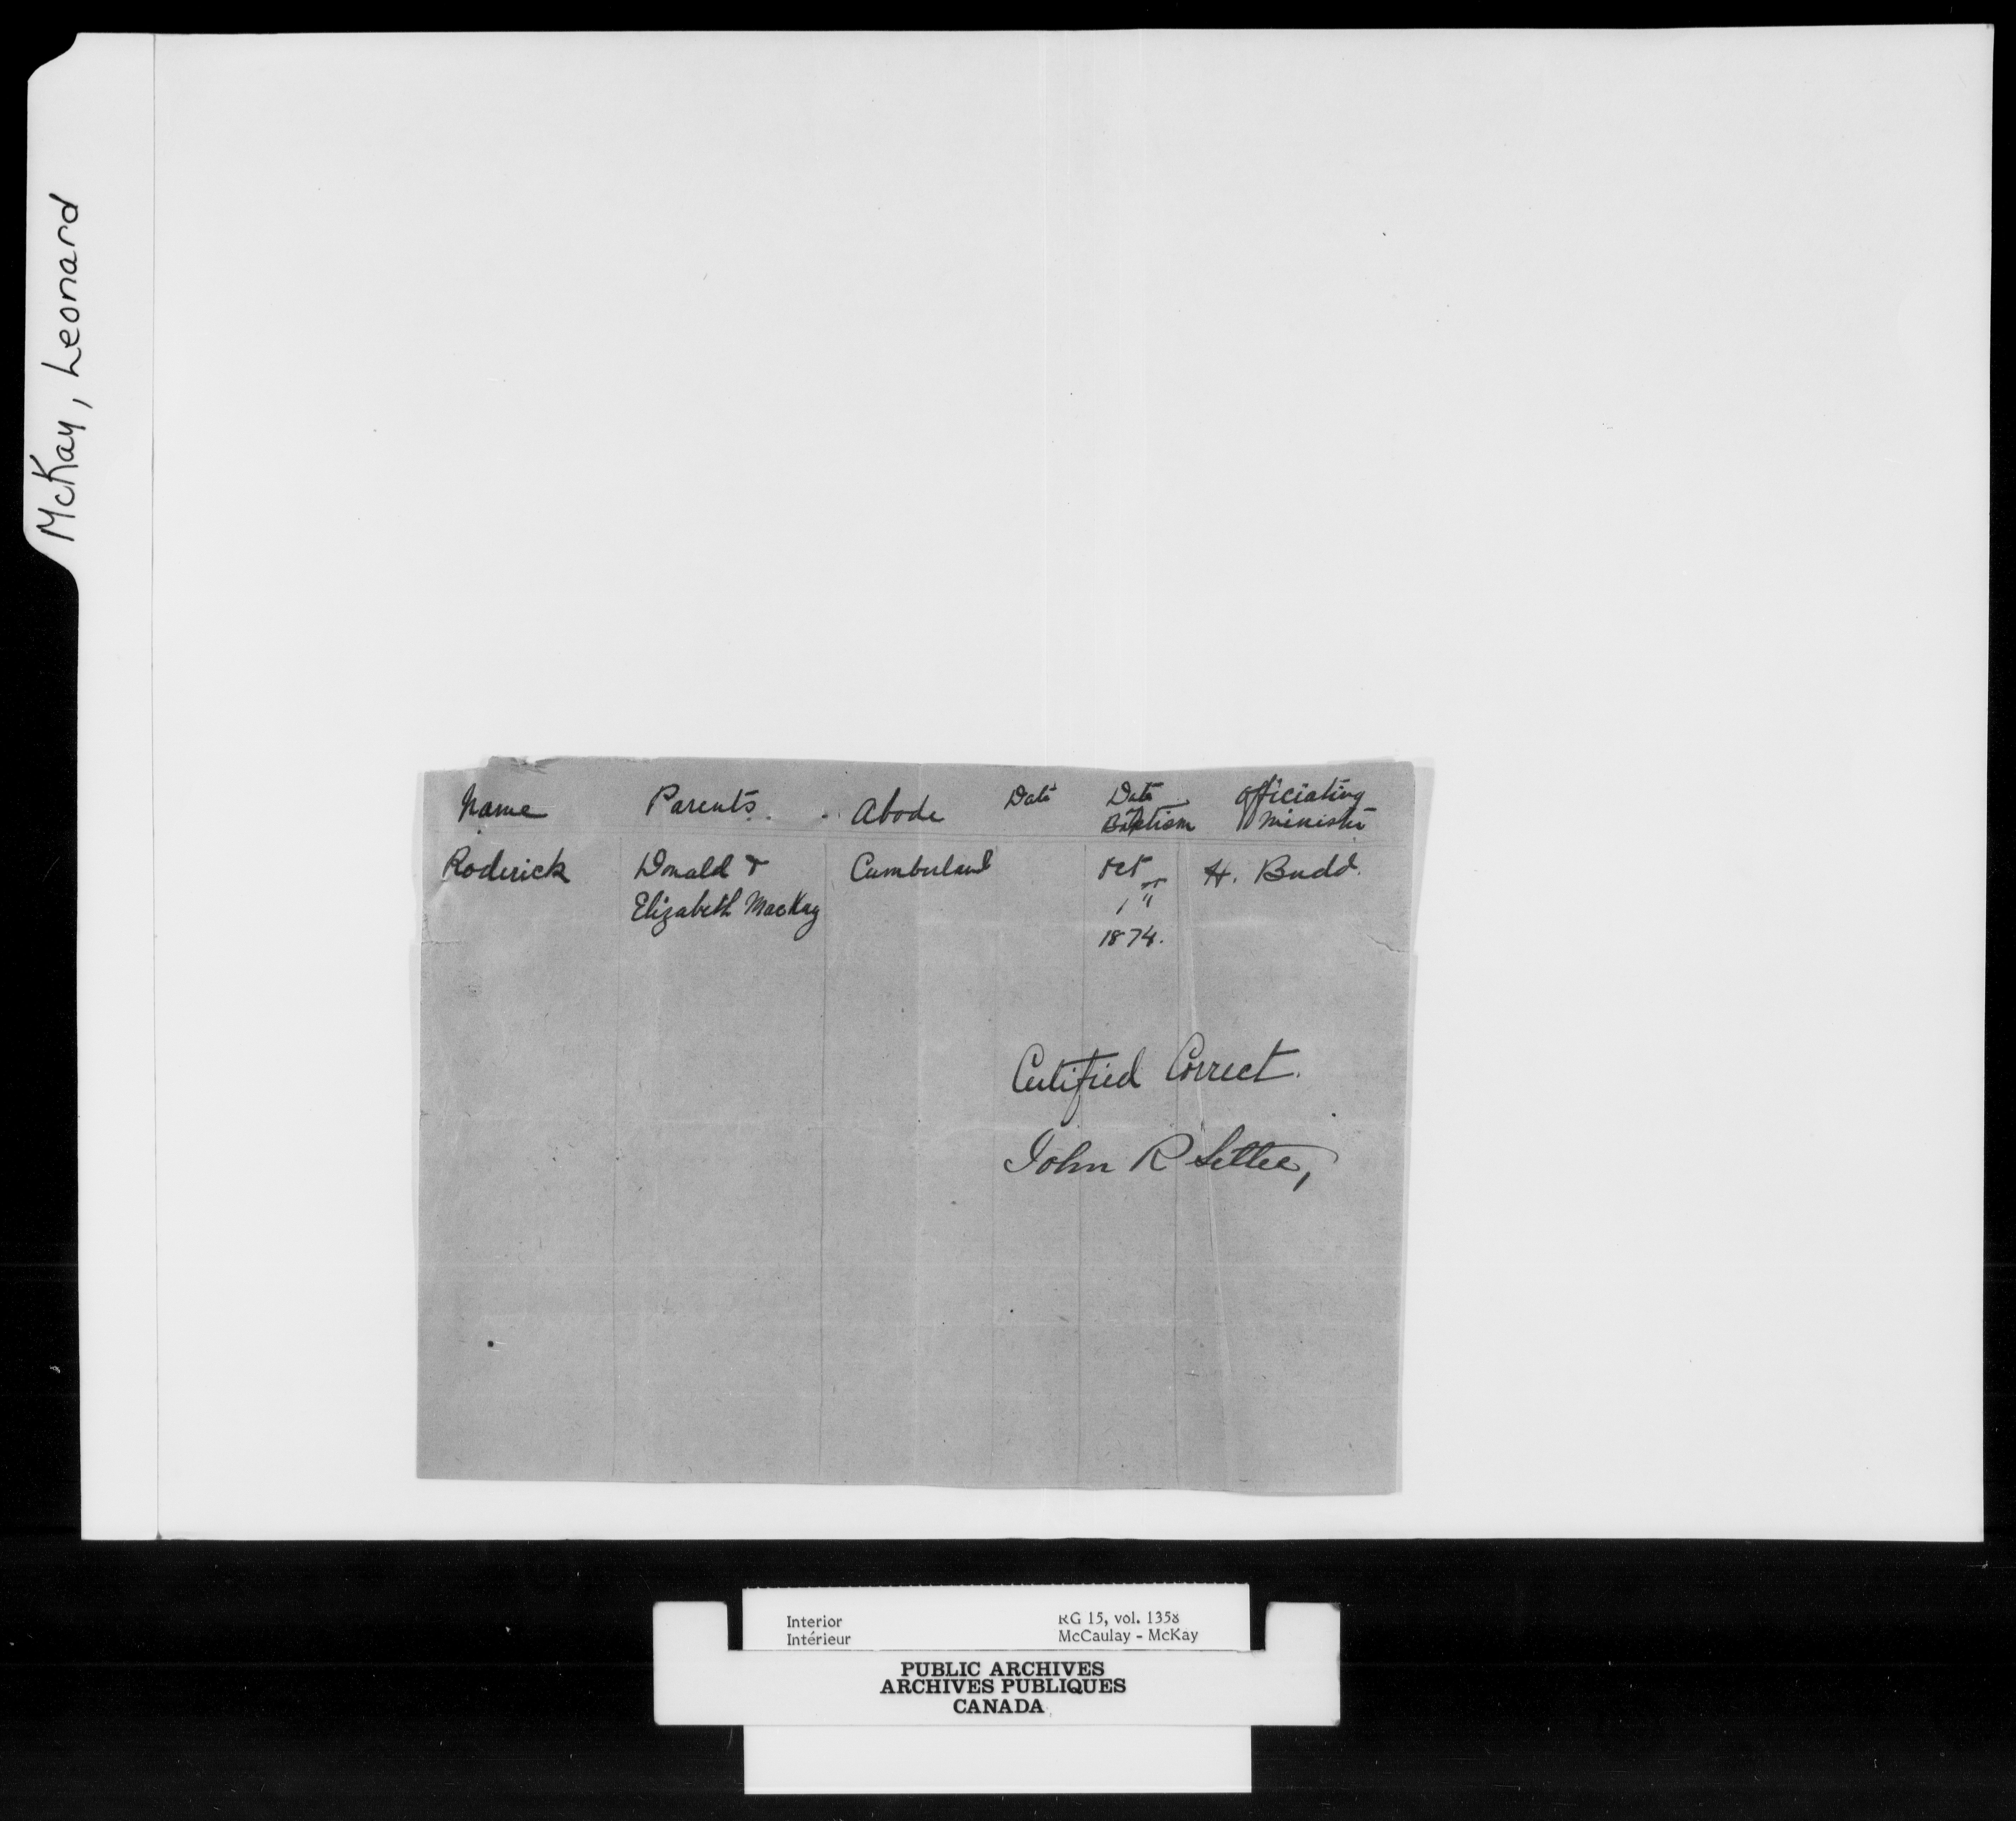 McKay, Leonard
Name Parents. Abode Date Date Baptism Officiating Minister
Roderick Donald & Cumberland Oct H. Budd.
Elizabeth MacKay 1st
1874.
Certified Correct.
John R Settee,
Interior RG 15, vol. 1358
Intérieur McCaulay - McKay
PUBLIC ARCHIVES
ARCHIVES PUBLIQUES
CANADA